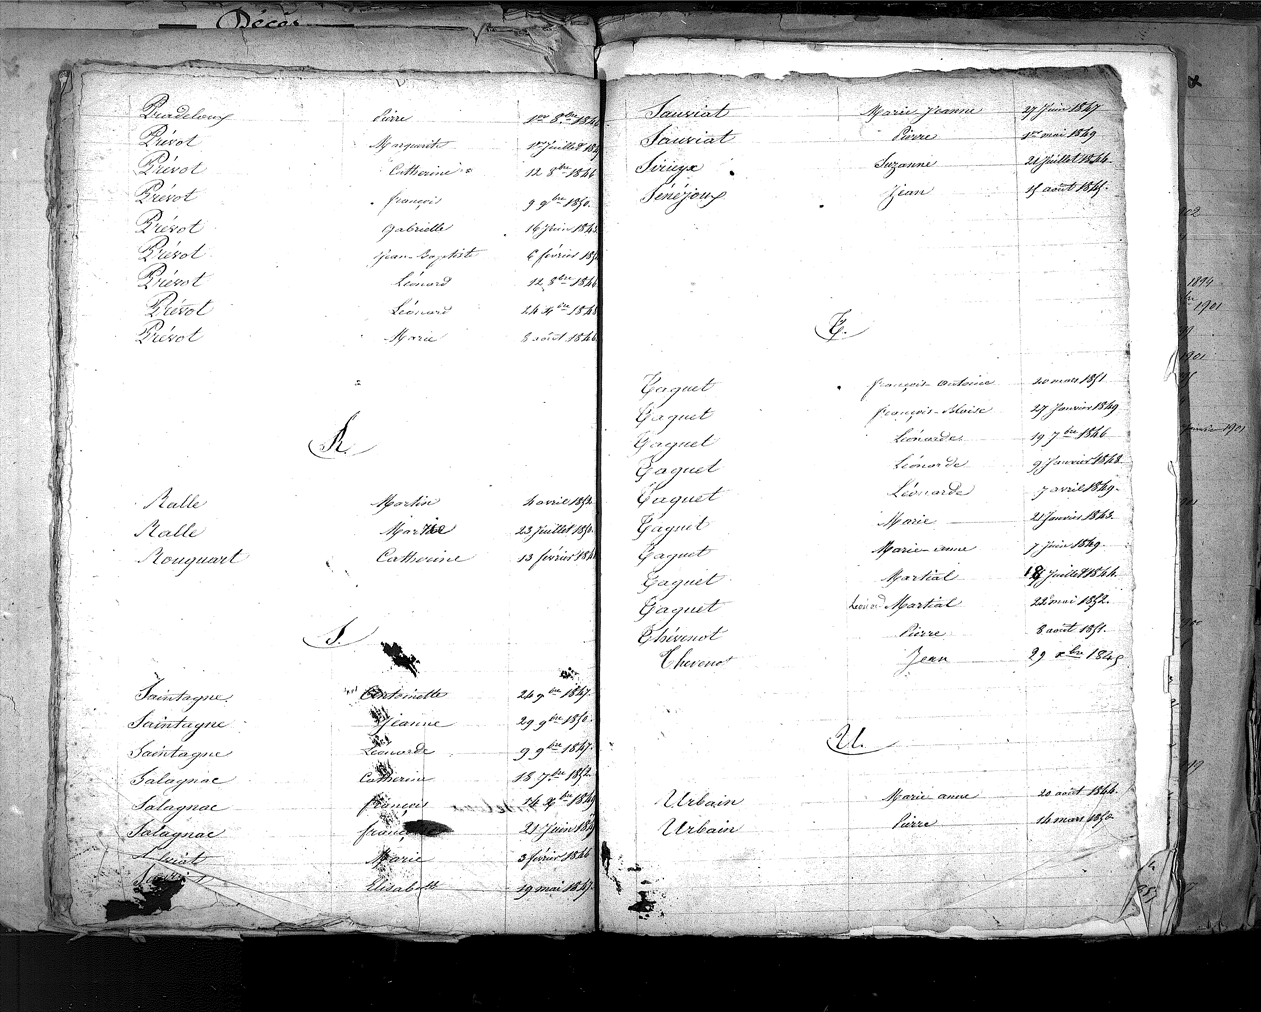 Décès
Pradeloux Pierre 1er 8bre 1846
Prévot Marguerite 1er Juillet
Prévot Catherine 12 8bre 1846
Prévot françois 9 9bre 1850.
Prévot Gabrielle 16 Juin 1848
Prévot Jean-Baptiste 6 février
Prévot Léonard 12 8bre 1846
Prévot Léonard 24 Xbre 1848
Prévot Marie 8 août 1846
R.
Ralle Martin 4 avril 1852
Ralle 23 Juillet 1850
Rouquart Catherine 13 février
S.
Saintagne Antoinette 24 9bre 1847.
Saintagne Jeanne 29 9bre 1850.
Saintagne Léonarde 9 9bre 1847.
Salagnac Catherine 18 7bre 1852.
Salagnac françois 24 Xbre 1849
Salagnac 21 Juin
Marie 3 février 1846
Elisabeth 19 mai 1847.
Sauviat Marie-Jeanne 27 Juin 1847
Sauviat Pierre 1er mai 1849
Sirieyx Suzanne 21 Juillet 1844.
Sénéjoux Jean 15 août 1845.
T.
Taguet françois-antoine 20 mars 1851
Taguet françois-Blaise 27 Janvier 1849
Taguet Léonarde 19 7bre 1846
Taguet Léonarde 9 Janvier 1848.
Taguet Léonarde 7 avril 1849.
Taguet Marie 21 Janvier 1843.
Taguet Marie-anne 7 Juin 1849.
Taguet Martial 18 Juillet 1844.
Taguet Léonard Martial 22 mai 1852.
Thévenot Pierre 8 août 1851.
Thevenot Jean 29 Xbre 1845
U.
Urbain Marie anne 20 août 1844.
Urbain Pierre 14 mars 1850
1894
1901
1901
1901